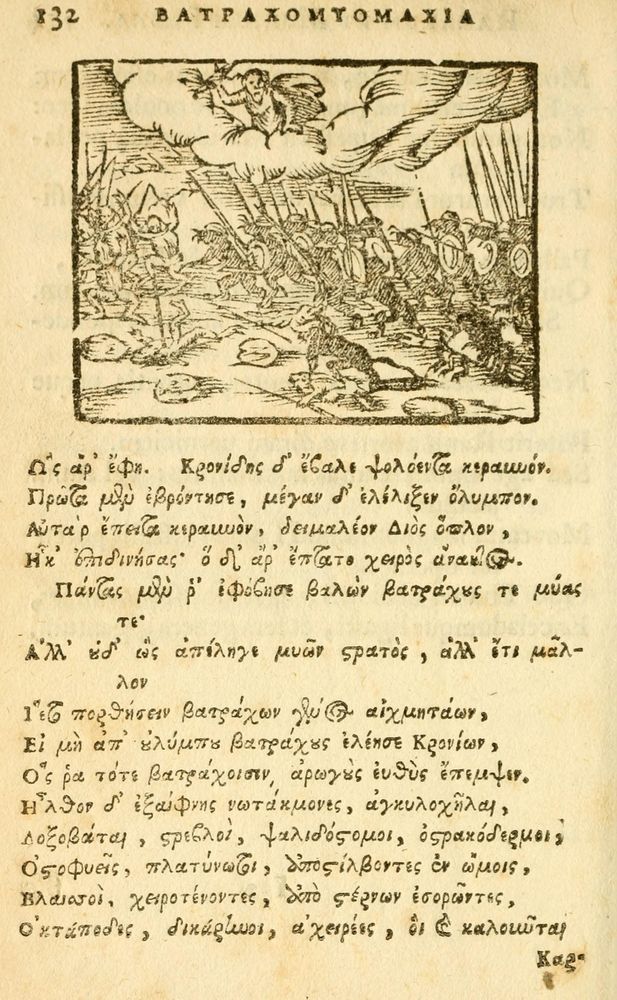 132 ΒΑΤΡΑΧΟΜΥΟΜΑΧΙΑ
Ὣς ἄρ' ἔφη. Κρονίδης δ' ἔβαλε ψολόεντα κεραυνόν.
Πρῶτα μὲν ἐβρόντησε, μέγαν δ' ἐλέλιξεν ὄλυμπον.
Αὐτὰρ ἔπειτα κεραυνὸν, δειμαλέον Διὸς ὅπλον,
Ἧκ' ἐπιδινήσας· ὁ δ' ἄρ' ἔπτατο χειρὸς ἄνακτος.
Πάντας μὲν ῥ' ἐφόβησε βαλὼν βατράχους τε μύας
τε·
Ἀλλ' οὐδ' ὣς ἀπέληγε μυῶν στρατὸς, ἀλλ' ἔτι μᾶλ-
λον
Ἵετο πορθήσειν βατράχων γένος αἰχμητάων,
Εἰ μὴ ἀπ' οὐλύμπου βατράχους ἐλέησε Κρονίων,
Ὅς ῥα τότε βατράχοισιν ἀρωγοὺς εὐθὺς ἔπεμψεν.
Ἦλθον δ' ἐξαίφνης νωτάκμονες, ἀγκυλοχῆλαι,
Λοξοβάται, στρεβλοὶ, ψαλιδόστομοι, ὀστρακόδερμοι,
Ὀστοφυεῖς, πλατύνωτοι, ἀποστίλβοντες ἐν ὤμοις,
Βλαισοὶ, χειροτένοντες, ἀπὸ στέρνων ἐσορῶντες,
Ὀκτάποδες, δικάρηνοι, ἀχειρέες, οἱ καλοῦνται
Καρ-